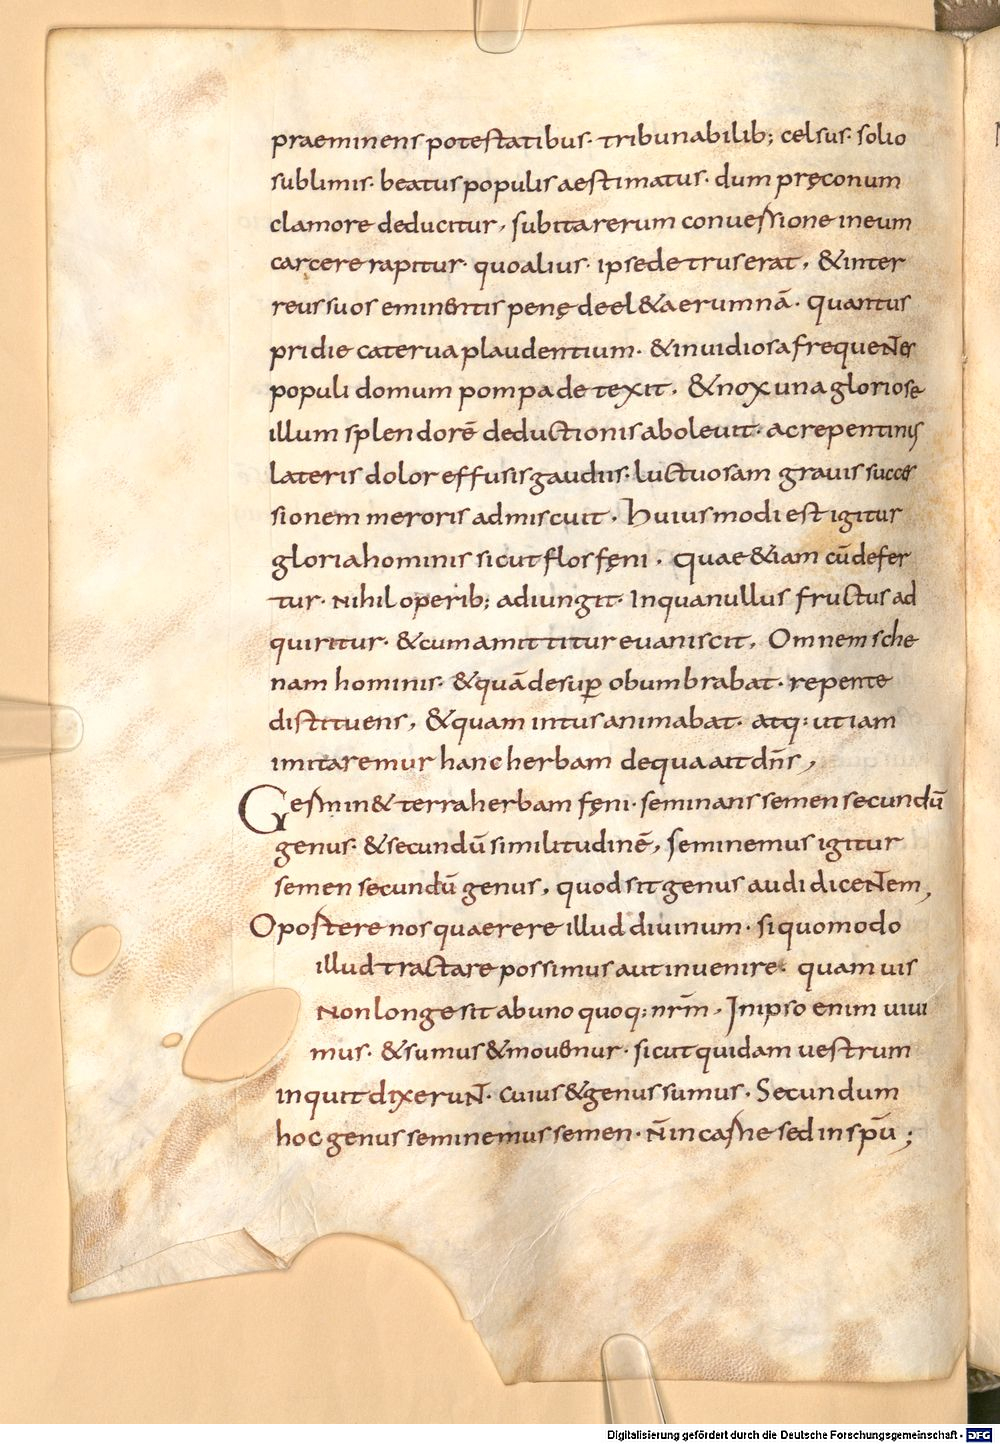 praeminens potestatibus· tribunabilib; celsus· solio
sublimis· beatus populis aestimatus· dum pręconum
clamore deducitur, subita rerum conuersione in eum
carcere rapitur· quo alius· ipse detruserat, & inter
reus suos eminentis penę deel&aerumnā· quantus
pridie caterua plaudentium· & inuidiosa frequeNtes
populi domum pompa detexit, & nox una gloriose
illum splendorē deductionis aboleuit· ac repentinis
lateris dolor effusis gaudiis· luctuosam grauis succes
sionem meroris admiscuit, Huiusmodi est igitur
gloria hominis sicut flos fęni, quae &iam cū defer
tur· Nihil operib; adiungit· In qua nullus fructus ad
quiritur· & cum amittitur euaniscit, Omnem sche
nam hominis· & quā desup̄ obumbrabat· repente
distituens, & quam intus animabat· atq: utiam
imitaremur hanc herbam de qua ait dn̄s,
Germin& terra herbam fęni· seminans semen secundū
genus· & secundū similitudinē, seminemus igitur
semen secundū genus, quod sit genus audi diceNtem,
Opostere nos quaerere illud diuinum· si quomodo
illud tractare possimus aut inuenire· quamuis
Non longe sit ab uno quoq: nrm̄, In ipso enim uiui
mus· & sumus & mouenur· sicut quidam uestrum
inquit dixeruNt· cuius & genus sumus· Secundum
hoc genus seminemus semen· N̄ in carne sed in spū;
Digitalisierung gefördert durch die Deutsche Forschungsgemeinschaft - DFG